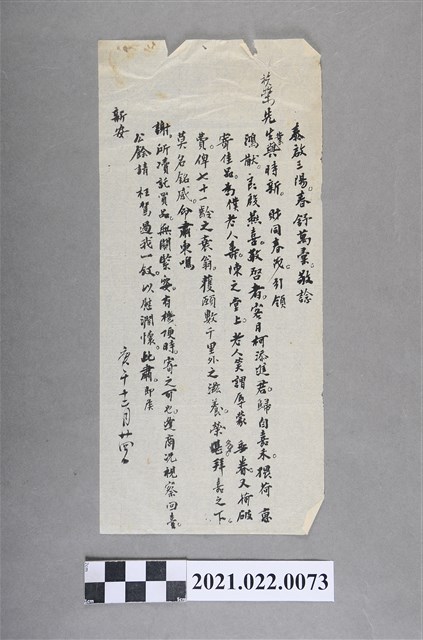 泰啟三陽。春舒萬彙。敬諗
扶榮先生業與時新。財同春茂。引領
鴻猷。良殷燕喜。敬啓者。客月柯添進君。歸自嘉禾。猥荷 惠
寄佳品。為僕老人壽。陳之堂上。老人笑謂辱蒙 垂眷。又揥破
費。俾七十一齡之衰翁。穫頤數千里外之滋養。榮 拜嘉之下。
莫名銘感。勿肅東鳴
謝。所賸託買品。無關緊要。有機順時。寄之可也。逢商況視察回臺。
公餘請 枉駕過我一敘。以慰濶懷。此肅即候
新安
庚午十二月廿四日
2021.022.0073